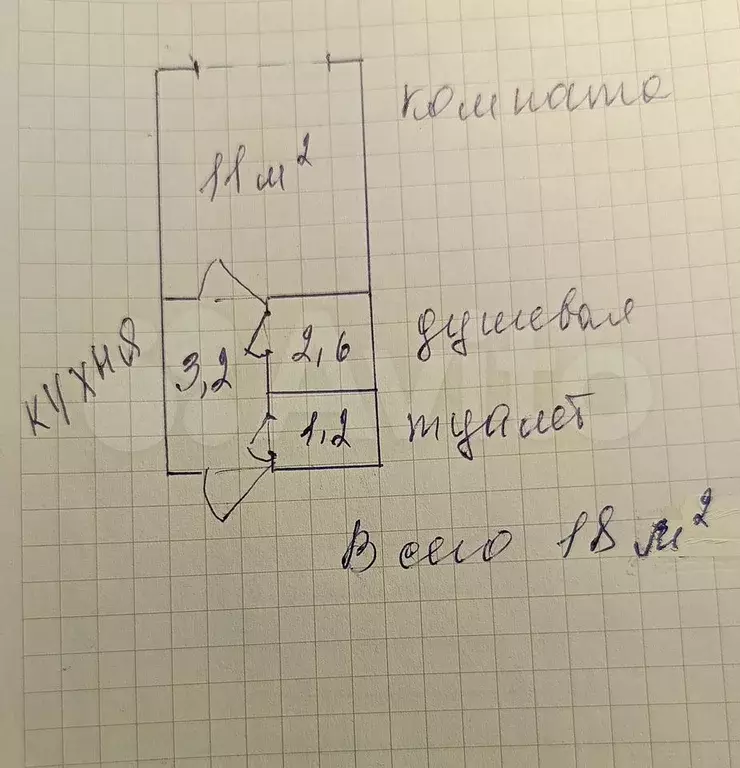 комната
11 м²
душевая
кухня
3,2
2,6
1,2
туалет
Всего 18 м²
Avito